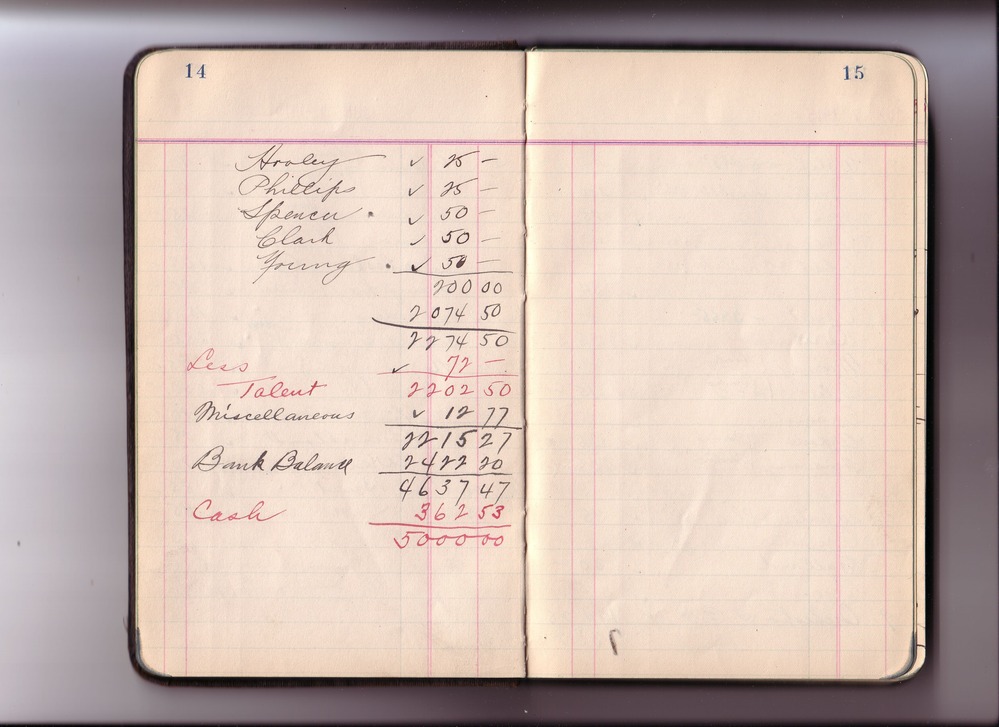 14
15
Hooley ✓ 25 —
Phillips ✓ 25 —
Spencer . ✓ 50 —
Clark ✓ 50 —
Young . ✓ 50 —
200 00
2074 50
2274 50
Less ✓ 72 —
Talent 2202 50
Miscellaneous ✓ 12 77
2215 27
Bank Balance 2422 20
4637 47
Cash 362 53
5000 00